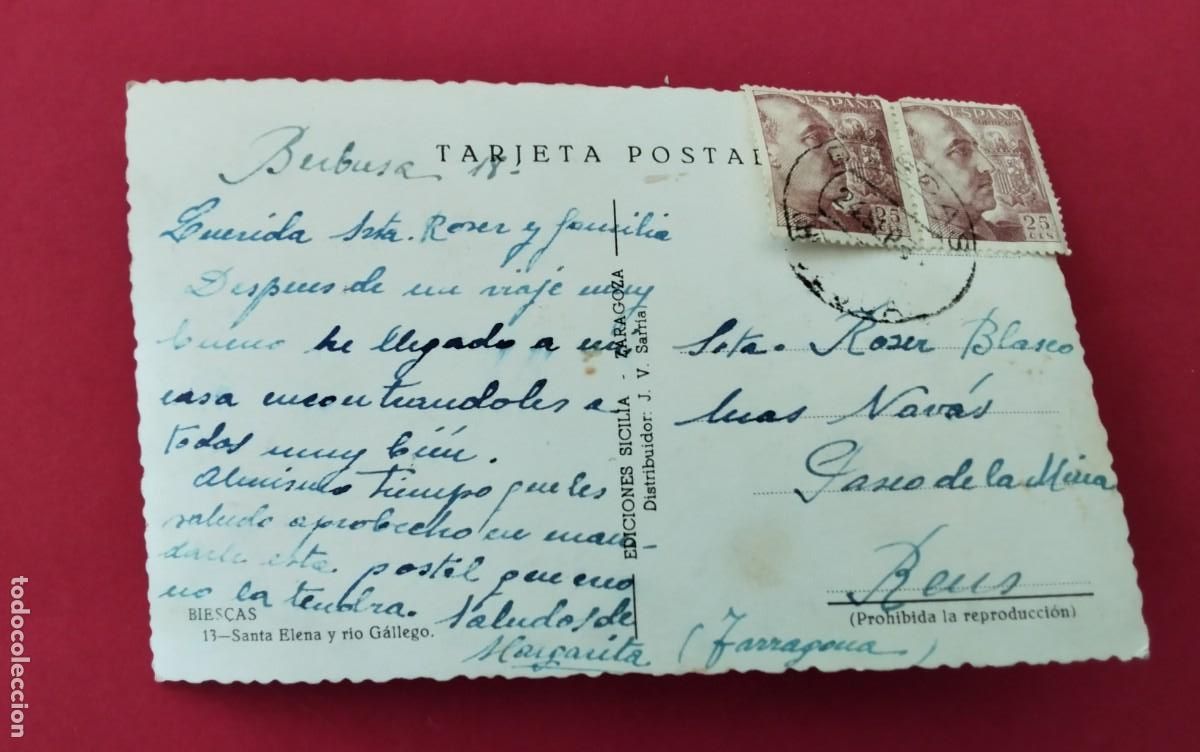 TARJETA POSTAL
Berbusa 18-
Querida Srta. Roser y familia
Despues de un viaje muy
bueno he llegado a mi
casa encontrandoles a
todos muy bien.
Al mismo tiempo que les
saludo aprobecho en man-
darle esta postal que creo
no la tendra. Saludos de
Margarita
BIESCAS
13—Santa Elena y rio Gállego.
EDICIONES SICILIA - ZARAGOZA
Distribuidor: J. V. Sarria
ESPAÑA
CORREOS
25
CTS
ESPAÑA
CORREOS
25
CTS
Srta. Roser Blasco
Mas Navás
Paseo de la Mina
Reus
(Prohibida la reproducción)
(Tarragona)
todocoleccion